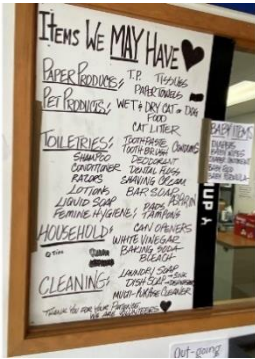 ITEMS WE MAY HAVE
PAPER PRODUCTS: T.P. TISSUES
PAPER TOWELS
PET PRODUCTS: WET & DRY CAT & DOG
FOOD
CAT LITTER
TOILETRIES: TOOTHPASTE
TOOTHBRUSH CONDOMS
SHAMPOO DEODORANT
CONDITIONER DENTAL FLOSS
RAZORS SHAVING CREAM
LOTIONS BAR SOAP
LIQUID SOAP PADS, ASPIRIN
FEMINE HYGIENE: TAMPONS
HOUSEHOLD: CAN OPENERS
WHITE VINEGAR
BAKING SODA
BLEACH
CLEANING: LAUNDRY SOAP
DISH SOAP - SINK
MULTI-PURPOSE CLEANER
THANK YOU FOR YOUR PATIENCE
WE ARE
BABY ITEMS
DIAPERS
BABY WIPES
BABY FOOD
FORMULA
UP
Out-going